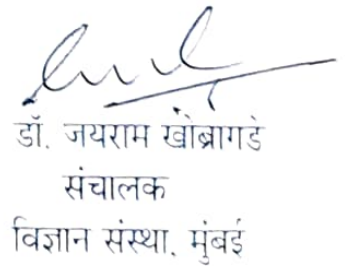 डॉ. जयराम खोब्रागडे
संचालक
विज्ञान संस्था, मुंबई